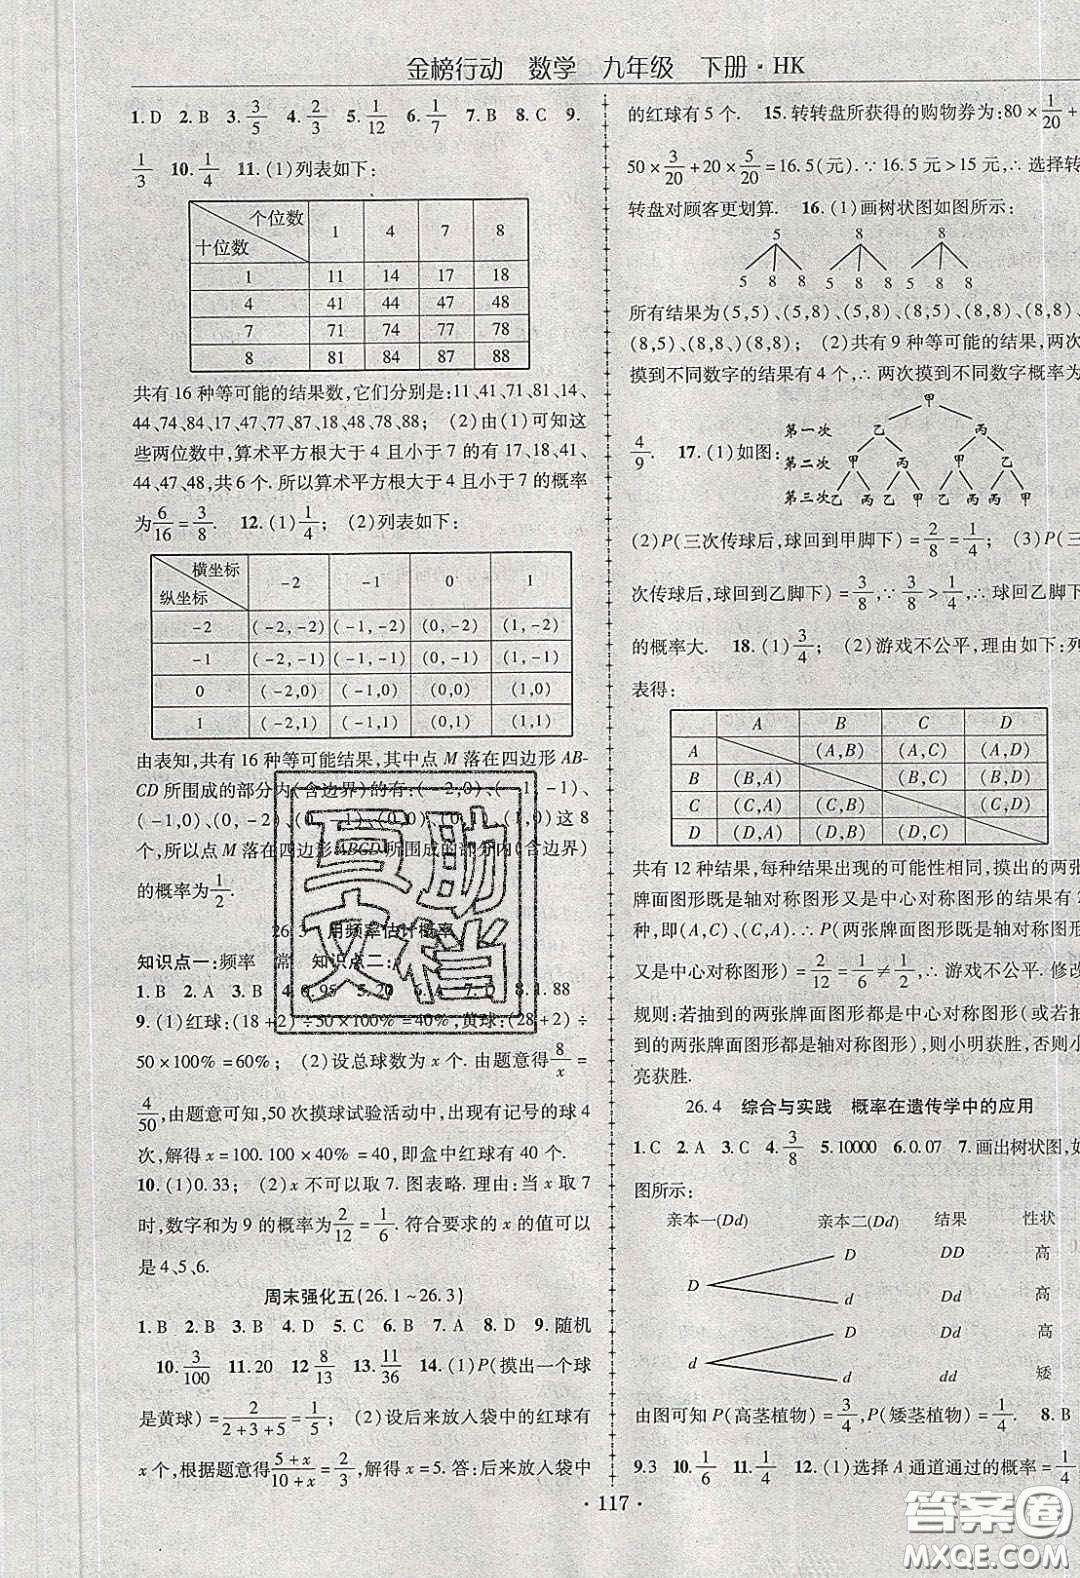 金榜行动 数学 九年级 下册·HK
1. D 2. B 3. 3/5 4. 2/3 5. 1/12 6. 1/7 7. B 8. C 9.
1/3 10. 1/4 11. (1)列表如下:
个位数 1 4 7 8
十位数
1 11 14 17 18
4 41 44 47 48
7 71 74 77 78
8 81 84 87 88
共有16种等可能的结果数,它们分别是:11、41、71、81、14、
44、74、84、17、47、77、87、18、48、78、88; (2)由(1)可知这
些两位数中,算术平方根大于4且小于7的有17、18、41、
44、47、48,共6个. 所以算术平方根大于4且小于7的概率
为6/16=3/8. 12. (1)1/4; (2)列表如下:
横坐标 -2 -1 0 1
纵坐标
-2 (-2,-2) (-1,-2) (0,-2) (1,-2)
-1 (-2,-1) (-1,-1) (0,-1) (1,-1)
0 (-2,0) (-1,0) (0,0) (1,0)
1 (-2,1) (-1,1) (0,1) (1,1)
由表知,共有16种等可能结果,其中点M落在四边形AB-
CD所围成的部分内(含边界)的有:(-2,0)、(-1,-1)、
(-1,0)、(0,-2)、(0,-1)、(0,0)、(0,1)、(1,0)这8
个,所以点M落在四边形ABCD所围成的部分内(含边界)
的概率为1/2.
26.3 用频率估计概率
知识点一:频率 常 知识点二:
1. B 2. A 3. B 4. 0.95 5. 20 6. A 7. D 8. 1.88
9. (1)红球:(18+2)÷50×100%=40%,黄球:(28+2)÷
50×100%=60%; (2)设总球数为x个. 由题意得8/x=
4/50,由题意可知,50次摸球试验活动中,出现有记号的球4
次,解得x=100. 100×40%=40,即盒中红球有40个.
10. (1)0.33; (2)x不可以取7. 图表略. 理由:当x取7
时,数字和为9的概率为2/12=1/6. 符合要求的x的值可以
是4、5、6.
周末强化五(26.1~26.3)
1. B 2. B 3. B 4. D 5. C 6. B 7. A 8. D 9. 随机
10. 3/100 11. 20 12 8/13 13. 11/36 14. (1)P(摸出一个球
是黄球)=2/(2+3+5)=1/5; (2)设后来放入袋中的红球有
x个,根据题意得(5+x)/(10+x)=2/3,解得x=5. 答:后来放入袋中
的红球有5个. 15. 转转盘所获得的购物券为:80×1/20+
50×3/20+20×5/20=16.5(元). ∵16.5元>15元,∴选择转
转盘对顾客更划算. 16. (1)画树状图如图所示:
5 8 8
5 8 8 5 8 8 5 8 8
所有结果为(5,5)、(5,8)、(5,8)、(8,5)、(8,8)、(8,8)、
(8,5)、(8,8)、(8,8); (2)共有9种等可能的结果,两次
摸到不同数字的结果有4个,∴两次摸到不同数字概率为
4/9. 17. (1)如图:
甲
第一次 乙 丙
第二次 甲 丙 甲 乙
第三次 乙 丙 甲 乙 乙 丙 甲 丙
(2)P(三次传球后,球回到甲脚下)=2/8=1/4; (3)P(三
次传球后,球回到乙脚下)=3/8,∵3/8>1/4,∴球回乙脚下
的概率大. 18. (1)3/4; (2)游戏不公平,理由如下:列
表得:
A B C D
A (A,B) (A,C) (A,D)
B (B,A) (B,C) (B,D)
C (C,A) (C,B) (C,D)
D (D,A) (D,B) (D,C)
共有12种结果,每种结果出现的可能性相同,摸出的两张
牌面图形既是轴对称图形又是中心对称图形的结果有2
种,即(A,C)、(C,A). ∴P(两张牌面图形既是轴对称图形
又是中心对称图形)=2/12=1/6≠1/2,∴游戏不公平. 修改
规则:若抽到的两张牌面图形都是中心对称图形(或若抽
到的两张牌面图形都是轴对称图形),则小明获胜,否则小
亮获胜.
26.4 综合与实践 概率在遗传学中的应用
1. C 2. A 3. C 4. 3/8 5. 10000 6. 0.07 7. 画出树状图,如
图所示:
亲本一(Dd) 亲本二(Dd) 结果 性状
D D DD 高
d Dd 高
d D Dd 高
d dd 矮
由图可知P(高茎植物)=3/4,P(矮茎植物)=1/4. 8. B
9. 3 10. 1/6 11. 1/4 12. (1)选择A通道通过的概率=1/4
· 117 ·
互助文档
答案圈
MXQE.COM